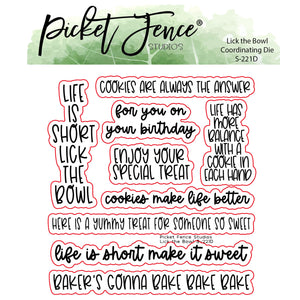 Picket Fence®
STUDIOS
Lick the Bowl
Coordinating Die
S-221D
LIFE
IS
SHORT
LICK
THE
BOWL
COOKIES ARE ALWAYS THE ANSWER
for you on
your birthday
ENJOY YOUR
SPECIAL TREAT
LIFE HAS
MORE
BALANCE
WITH A
COOKIE IN
EACH HAND
cookies make life better
HERE IS A YUMMY TREAT FOR SOMEONE SO SWEET
Picket Fence Studios
Lick the Bowl S-221D
life is short make it sweet
BAKER'S GONNA BAKE BAKE BAKE